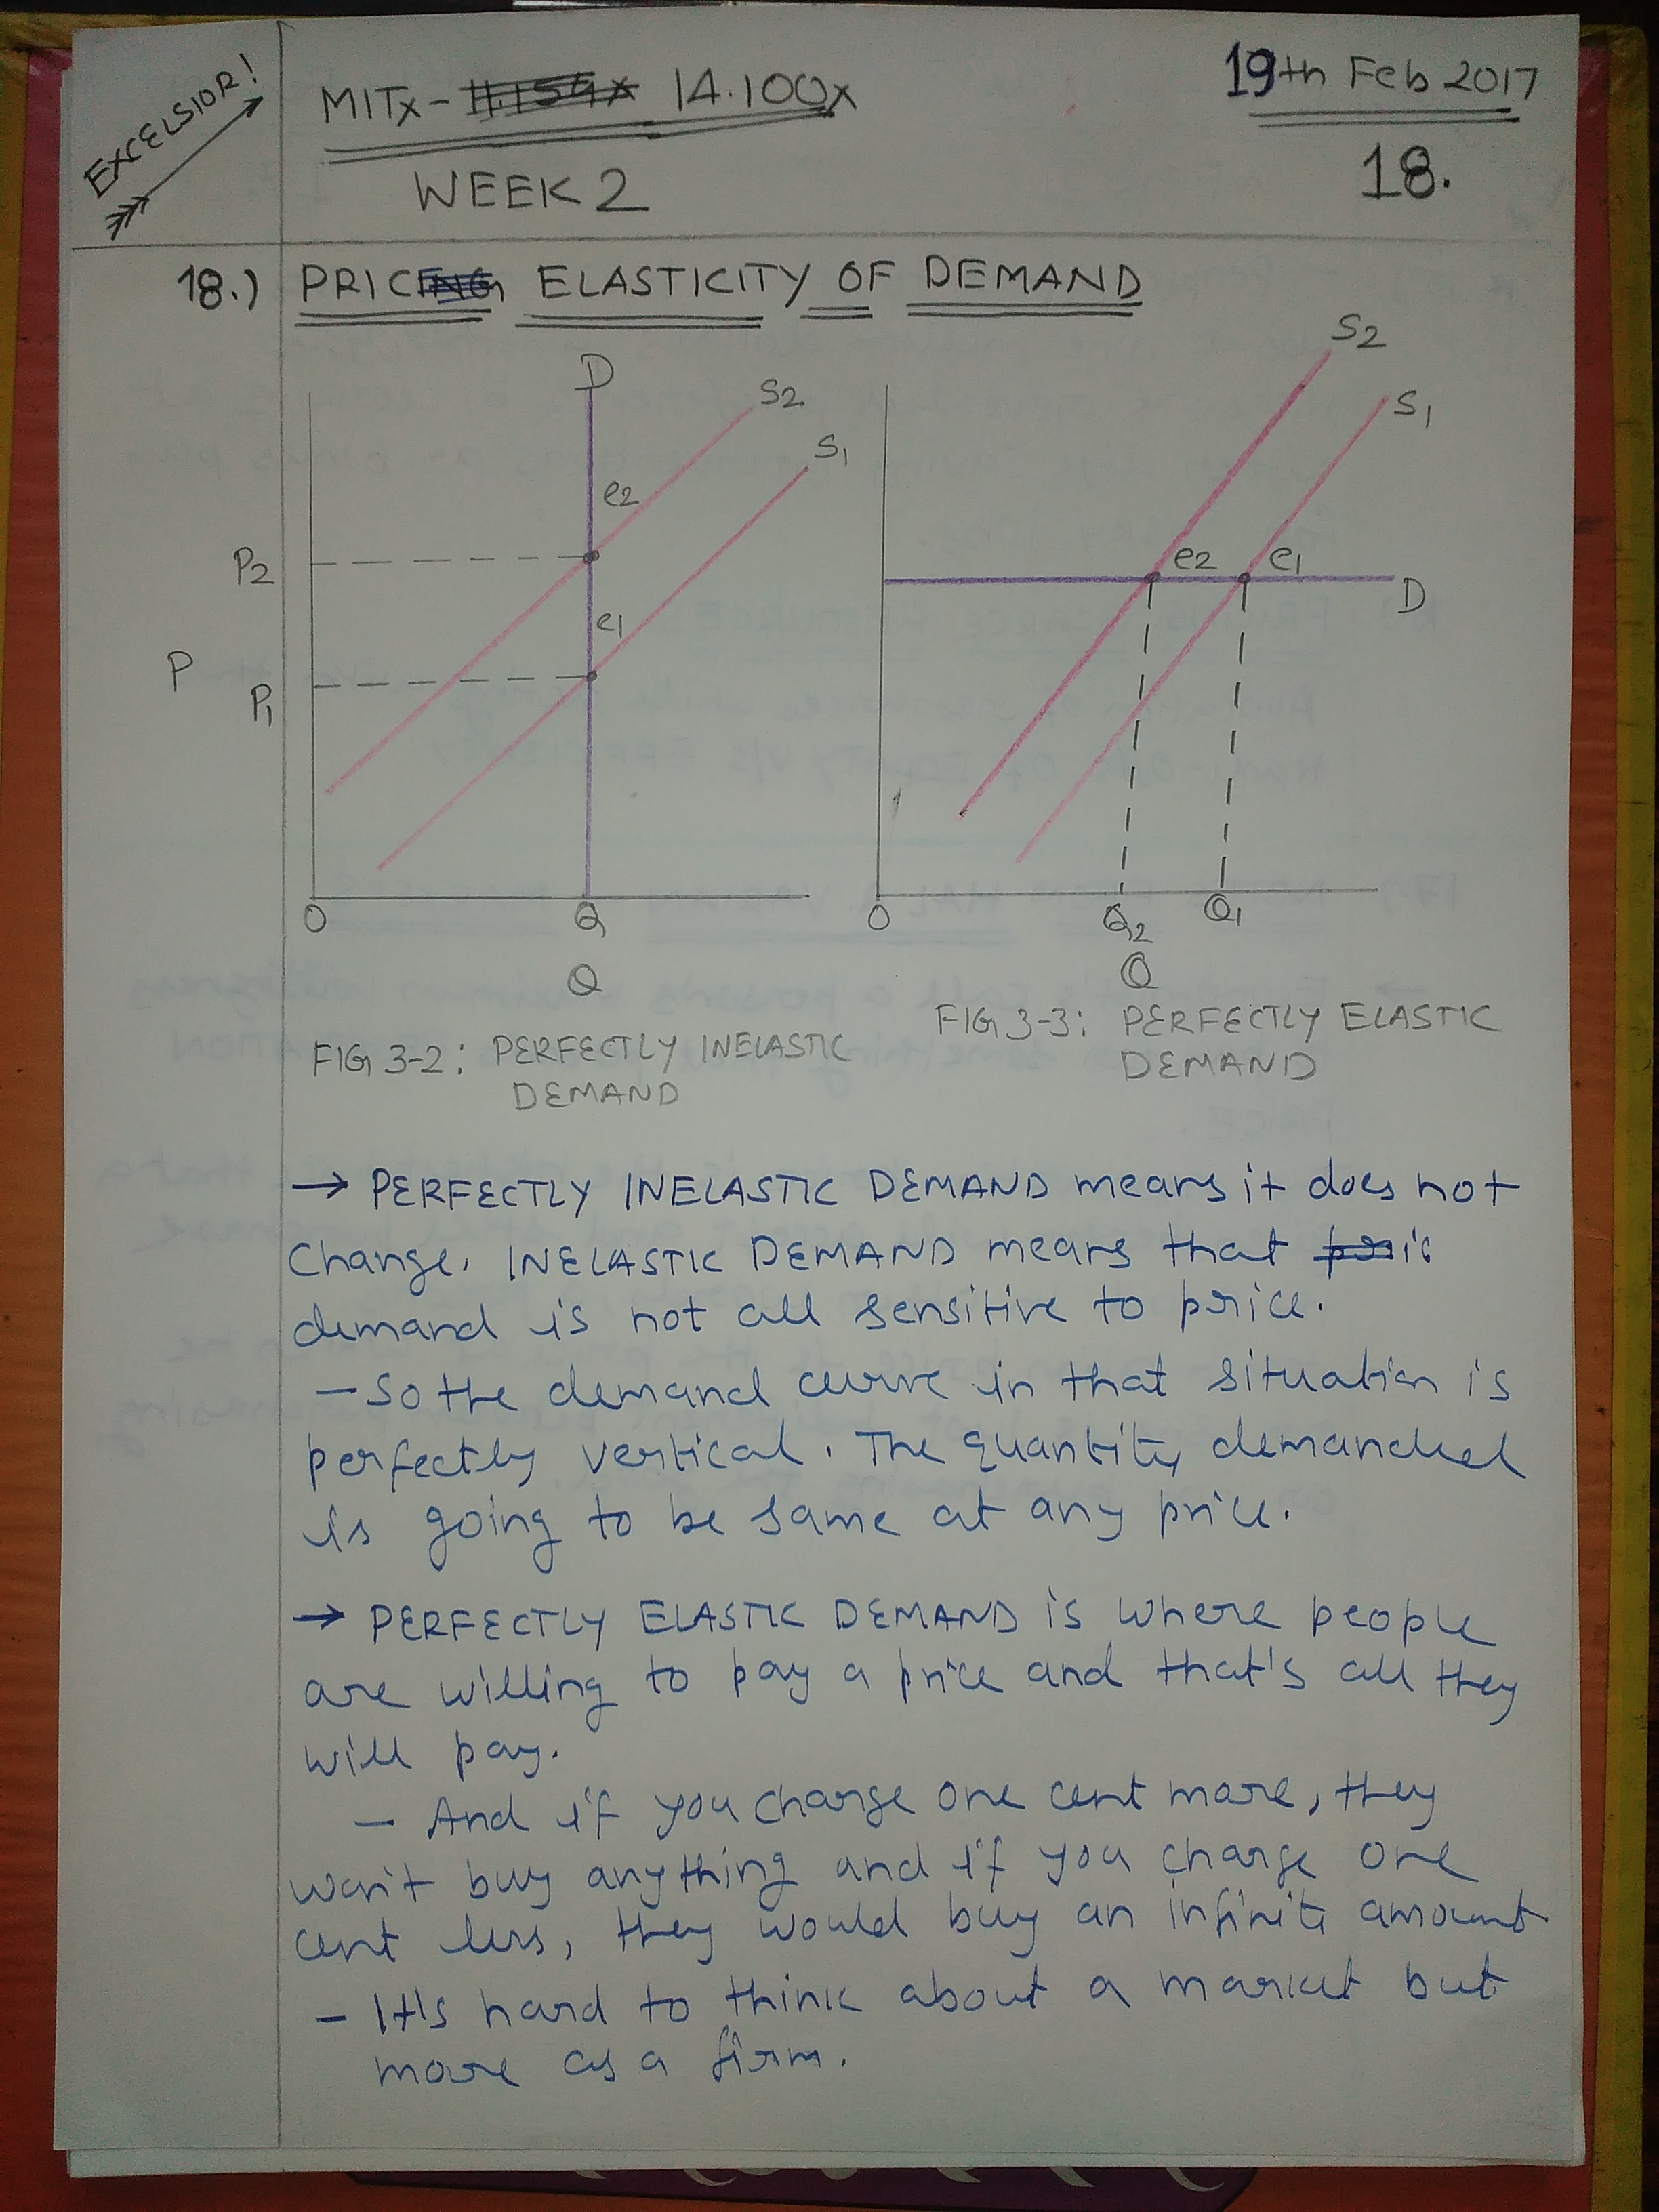 EXCELSIOR!
MITx- 14.100x
19th Feb 2017
WEEK 2
18.
18.) PRICE ELASTICITY OF DEMAND
D
S2
S1
e2
e1
P2
P
P1
O
Q
Q
FIG 3-2: PERFECTLY INELASTIC
DEMAND
S2
S1
e2
e1
D
O
Q2
Q1
Q
FIG 3-3: PERFECTLY ELASTIC
DEMAND
→ PERFECTLY INELASTIC DEMAND means it does not
Change. INELASTIC DEMAND means that
demand is not all sensitive to price.
- So the demand curve in that situation is
perfectly vertical. The quantity demanded
is going to be same at any price.
→ PERFECTLY ELASTIC DEMAND is where people
are willing to pay a price and that's all they
will pay.
- And if you charge one cent more, they
won't buy anything and if you charge one
cent less, they would buy an infinite amount
- It's hard to think about a market but
more as a firm.